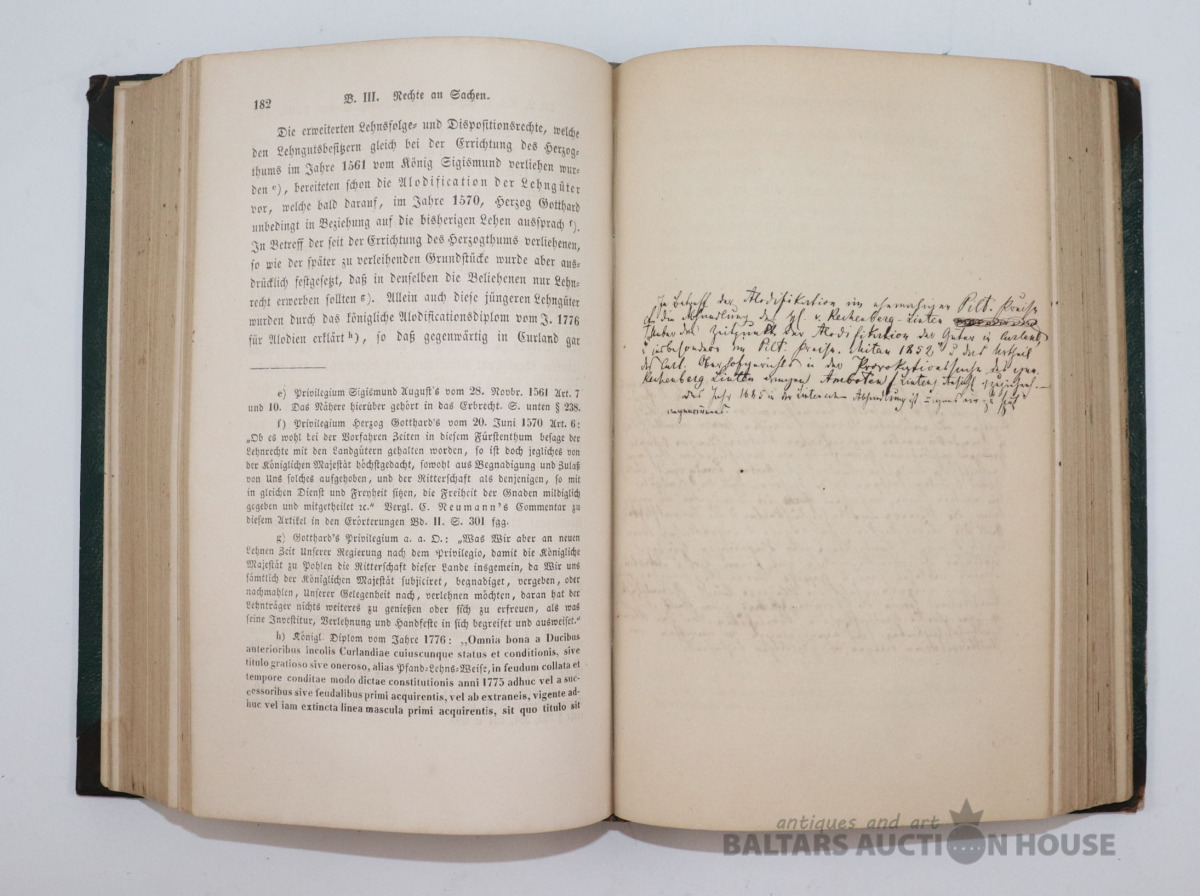 182 B. III. Rechte an Sachen.
Die erweiterten Lehnsfolge- und Dispositionsrechte, welche
den Lehngutsbesitzern gleich bei der Errichtung des Herzog-
thums im Jahre 1561 vom König Sigismund verliehen wur-
den e), bereiteten schon die Alodification der Lehngüter
vor, welche bald darauf, im Jahre 1570, Herzog Gotthard
unbedingt in Beziehung auf die bisherigen Lehen aussprach f).
In Betreff der seit der Errichtung des Herzogthums verliehenen,
so wie der später zu verleihenden Grundstücke wurde aber aus-
drücklich festgesetzt, daß in denselben die Beliehenen nur Lehn-
recht erwerben sollten g). Allein auch diese jüngeren Lehngüter
wurden durch das königliche Alodificationsdiplom vom J. 1776
für Alodien erklärt h), so daß gegenwärtig in Curland gar
e) Privilegium Sigismund August's vom 28. Novbr. 1561 Art. 7
und 10. Das Nähere hierüber gehört in das Erbrecht. S. unten § 238.
f) Privilegium Herzog Gotthard's vom 20. Juni 1570 Art. 6:
„Ob es wohl bei der Vorfahren Zeiten in diesem Fürstenthum besage der
Lehnrechte mit den Landgütern gehalten worden, so ist doch jegliches von
der Königlichen Majestät höchstgedacht, sowohl aus Begnadigung und Zulaß
von Uns solches aufgehoben, und der Ritterschaft als denjenigen, so mit
in gleichen Dienst und Freyheit sitzen, die Freiheit der Gnaden mildiglich
gegeben und mitgetheilet ꝛc.“ Vergl. C. Neumann's Commentar zu
diesem Artikel in den Erörterungen Bd. II. S. 301 fgg.
g) Gotthard's Privilegium a. a. O.: „Was Wir aber an neuen
Lehnen Zeit Unserer Regierung nach dem Privilegio, damit die Königliche
Majestät zu Pohlen die Ritterschaft dieser Lande insgemein, da Wir uns
sämtlich der Königlichen Majestät subjiciret, begnadiget, vergeben, oder
nachmahlen, Unserer Gelegenheit nach, verlehnen möchten, daran hat der
Lehnträger nichts weiteres zu genießen oder sich zu erfreuen, als was
seine Investitur, Verlehnung und Handfeste in sich begreifet und ausweiset.“
h) Königl. Diplom vom Jahre 1776: „Omnia bona a Ducibus
anterioribus incolis Curlandiae cuiuscunque status et conditionis, sive
titulo gratioso sive oneroso, alias Pfand-Lehns-Weise, in feudum collata et
tempore conditae modo dictae constitutionis anni 1775 adhuc vel a suc-
cessoribus sive feudalibus primi acquirentis, vel ab extraneis, vigente ad-
huc vel iam extincta linea mascula primi acquirentis, sit quo titulo sit
In Betreff der Alodifikation im ehemaligen Pilt. Kreise
die Abhandlung des v. Rechenberg-Linten
Ueber den Zeitpunkt der Alodifikation der Güter in Curland,
insbesondere im Pilt. Kreise. Mitau 1852 u das Urtheil
des Curl. Oberhofgerichts in der Provokationssache des
Rechenberg Linten wegen Amboten
Das Jahr 1685 in der Abhandlung ist
angenommen.
antiques and art
BALTARS AUCTION HOUSE